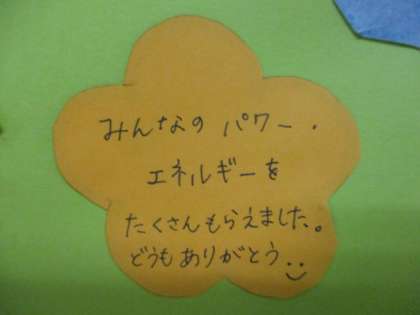 みんなの パワー・
エネルギーを
たくさんもらえました。
どうもありがとう